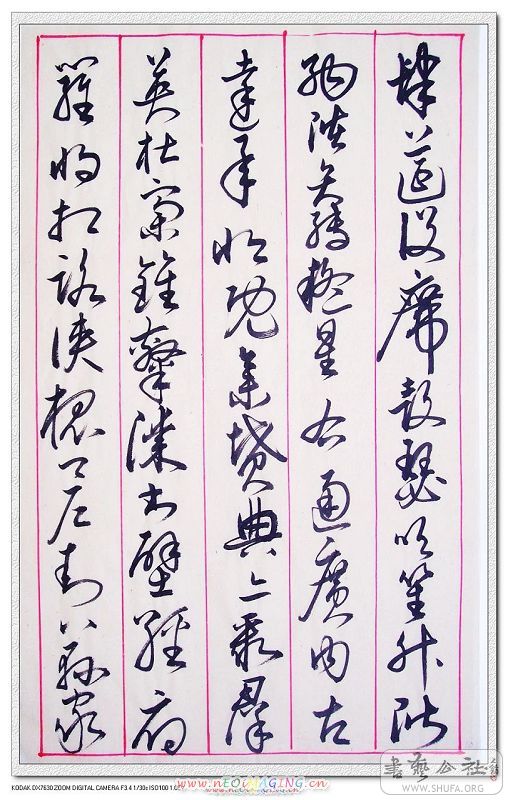 肆筵設席鼓瑟吹笙升階
納陛弁轉疑星右通廣內左
達承明既集墳典亦聚群
英杜稾鍾隸漆書壁經府
羅將相路俠槐卿戶封八縣家
KODAK DX7630 ZOOM DIGITAL CAMERA F3.4 1/30s ISO100
www.neoimaging.cn
書藝公社
WWW.SHUFA.ORG